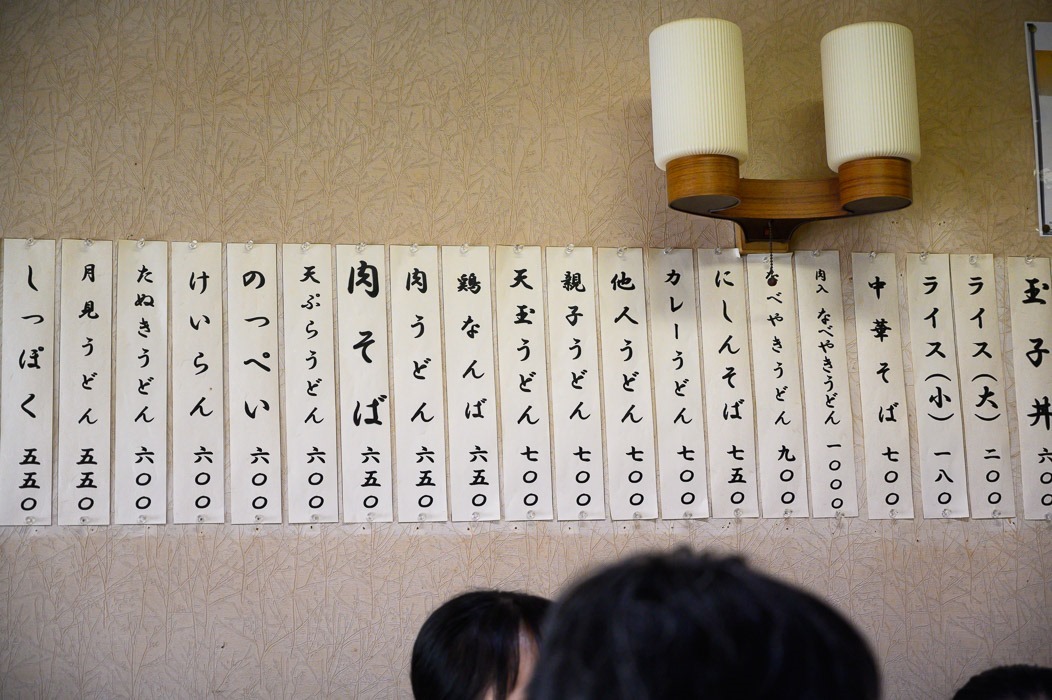 玉子丼 六〇〇
ライス(大) 二〇〇
ライス(小) 一八〇
中華そば 七〇〇
肉入 なべやきうどん 一〇〇〇
なべやきうどん 九〇〇
にしんそば 七五〇
カレーうどん 七〇〇
他人うどん 七〇〇
親子うどん 七〇〇
天玉うどん 七〇〇
鶏なんば 六五〇
肉うどん 六五〇
肉そば 六五〇
天ぷらうどん 六〇〇
のっぺい 六〇〇
けいらん 六〇〇
たぬきうどん 六〇〇
月見うどん 五五〇
しっぽく 五五〇